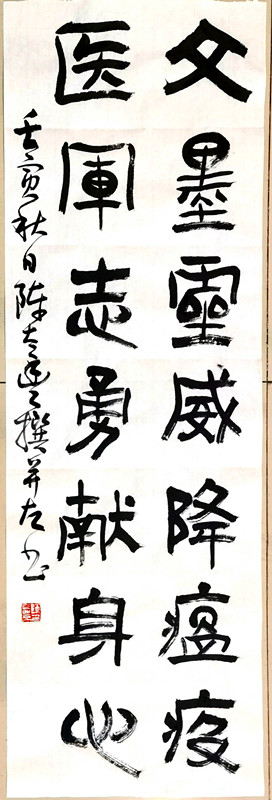 文墨靈威降瘟疫
医軍志勇献身心
壬寅秋日陈志远撰并左书